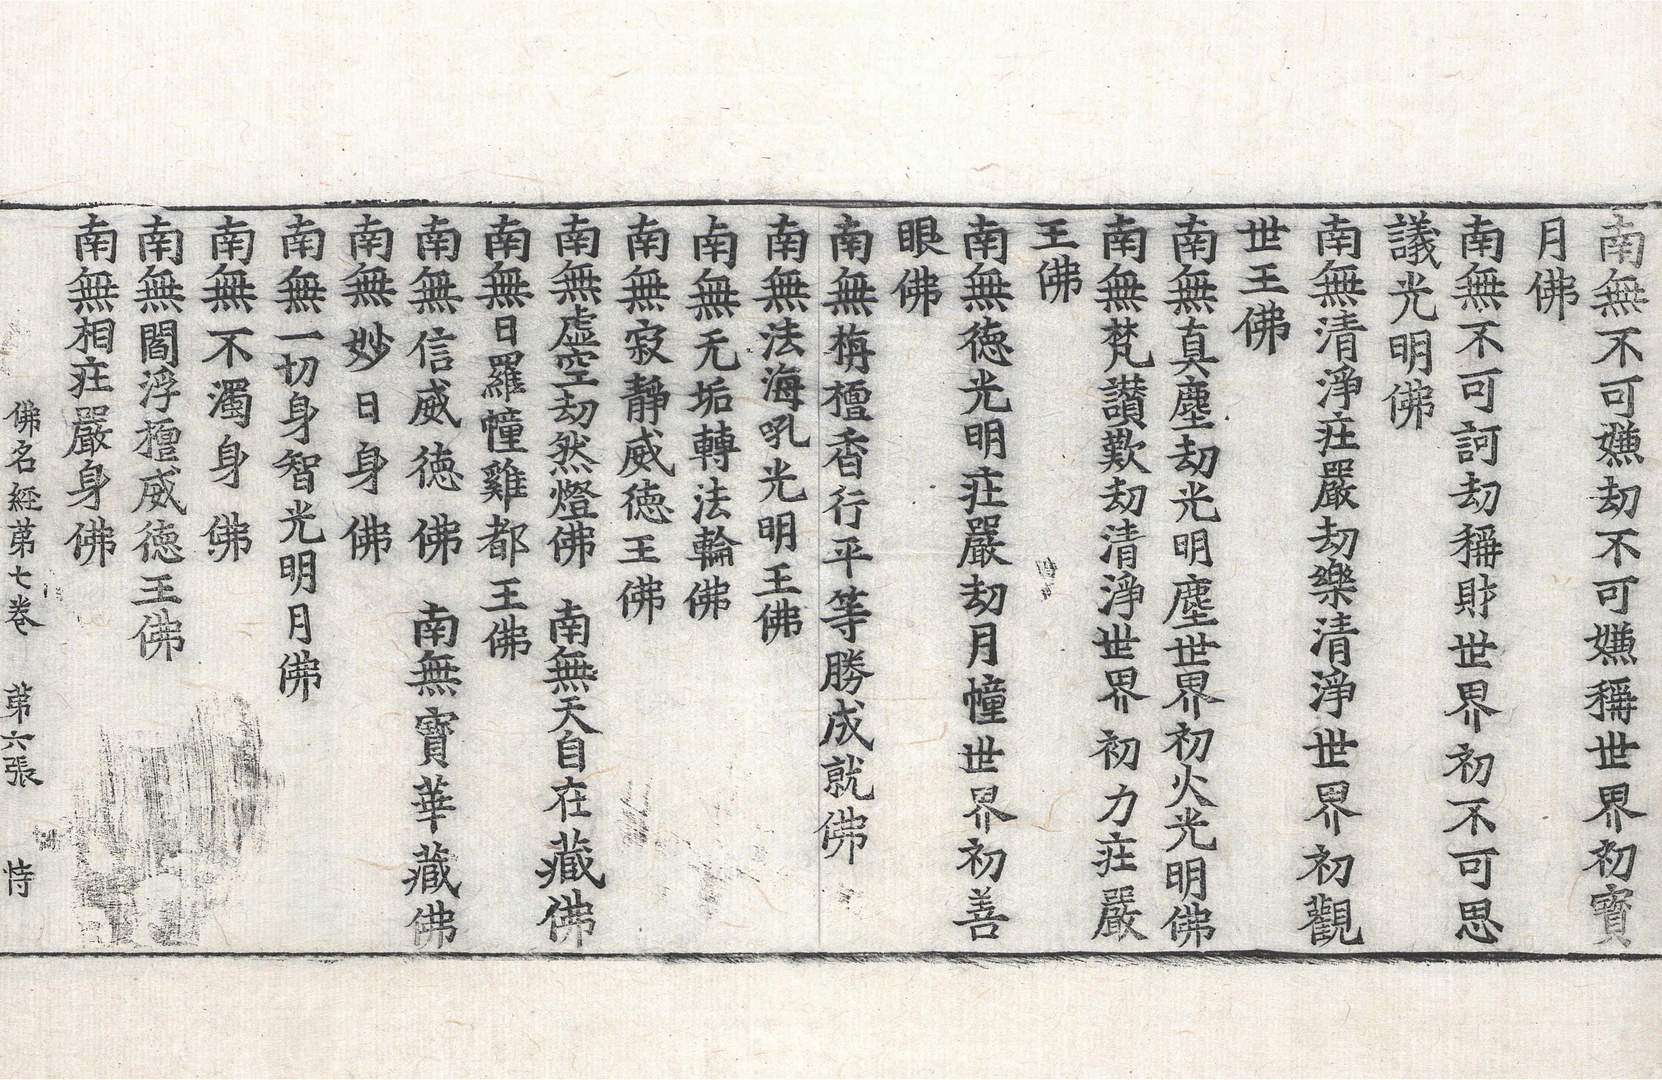 南無不可嫌劫不可嫌稱世界初寶
月佛
南無不可訶劫稱財世界初不可思
議光明佛
南無清淨莊嚴劫樂清淨世界初觀
世王佛
南無真塵劫光明塵世界初火光明佛
南無梵讚歎劫清淨世界初力莊嚴
王佛
南無德光明莊嚴劫月幢世界初善
眼佛
南無栴檀香行平等勝成就佛
南無法海吼光明王佛
南無无垢轉法輪佛
南無寂靜威德王佛
南無虛空劫然燈佛　南無天自在藏佛
南無日羅幢雞都王佛
南無信威德佛　南無寶華藏佛
南無妙日身佛
南無一切身智光明月佛
南無不濁身佛
南無閻浮檀威德王佛
南無相莊嚴身佛
佛名經第七卷　第六張　恃